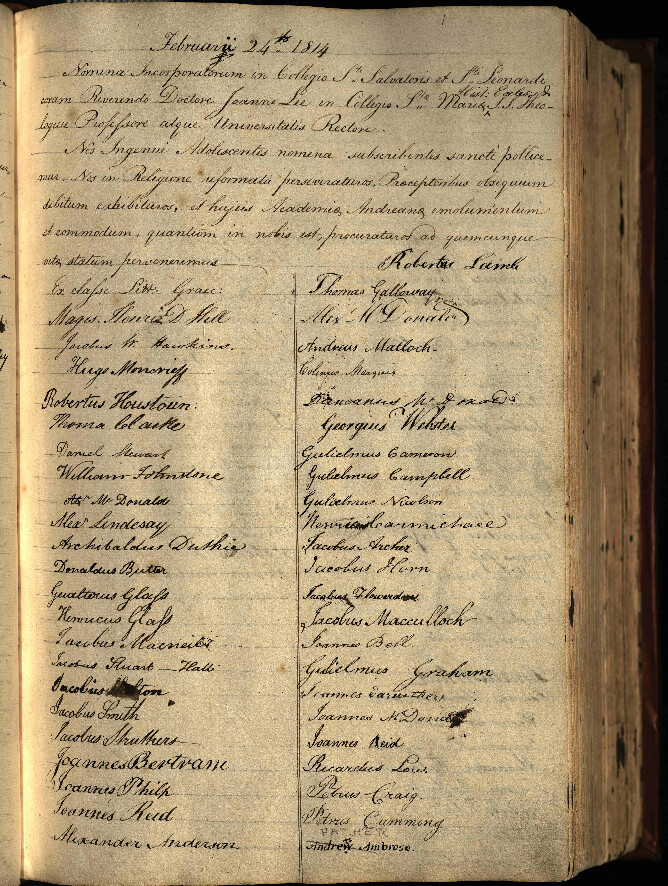 Februarii 24th 1814
Nomina Incorporatorum in Collegio Sti Salvatoris et Sti Leonardi
Hist: Eccles: &
coram Reverendo Doctore Joanne Lee in Collegio Stae Mariae S.S. Theo-
logiae Professore atque Universitatis Rectore.
Nos Ingenui Adolescentes nomina subscribentes sancte pollice-
mur. Nos in Religione reformata perseveraturos, Praeceptoribus obsequium
debitum exhibituros, et hujus Academiae Andreanae emolumentum
et commodum, quantum in nobis est, procuraturos ad quemcunque
vitae statum pervenerimus
Robertus Lamb
Ex classe Litt. Graec:
Magis. Henric D Hill
Jacobus W. Hawkins
Hugo Moncrieff
Robertus Houstoun:
Thoma Clarke
Daniel Stewart
William Johnstone
Alexr Mc Donald
Alexr Lindesay
Archibaldus Duthie
Donaldus Butter
Gualterus Glass
Henricus Glass
Jacobus Macneil
Jacobus Stuart — Hall
Jacobus
Jacobus Smith
Jacobus Struthers
Joannes Bertram
Joannes Philp
Joannes Reid
Alexander Anderson
Thomas Galloway
Alexr McDonald
Andreas Malloch
Colinus Marquis
Duncanus Mc D
Georgius Webster
Gulielmus Cameron
Gulielmus Campbell
Gulielmus Nicolson
Henricus Carmichael
Jacobus Archer
Jacobus Horn
Jacobus Flowerdew
Jacobus Macculloch
Joannes Bell
Gulielmus Graham
Joannes
Joannes McDonald
Joannes Reid
Ricardus Low
Petrus Craig
Petrus Cumming
Andrew Ambrose.